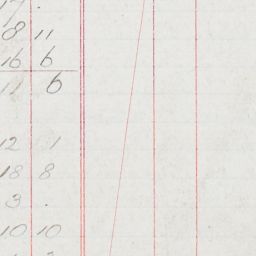 17 .
8 11
16 6
11 6
12 1
18 8
3 .
10 10